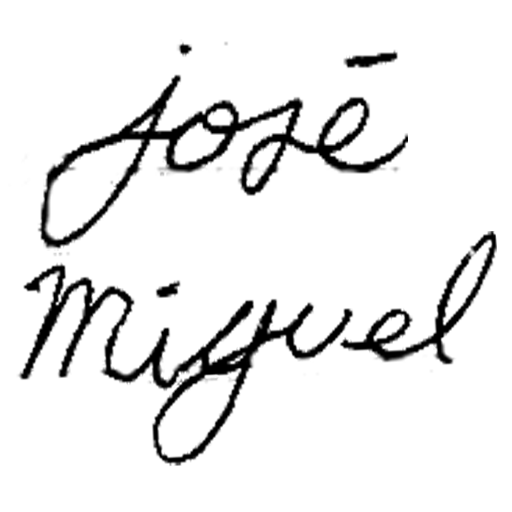 josé
Miguel